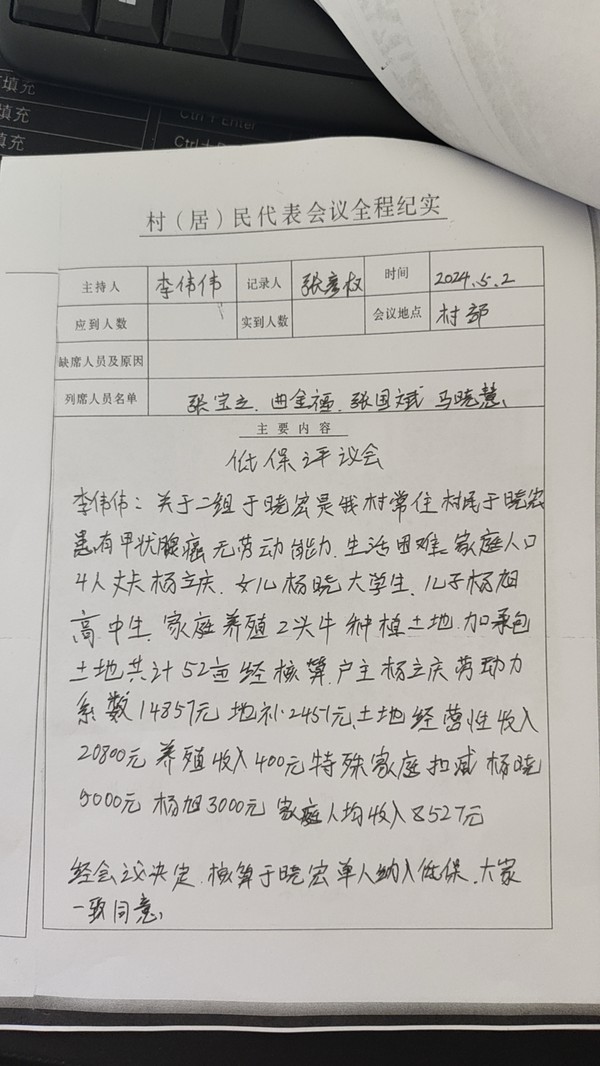 填充
填充
填充
Ctrl + Enter
村（居）民代表会议全程纪实
主持人 李伟伟 记录人 张彦权 时间 2024.5.2
应到人数 实到人数 会议地点 村部
缺席人员及原因
列席人员名单 张宝立、曲金福、张国斌 马晓慧、
主要内容
低保评议会
李伟伟：关于二组于晓宏是我村常住村民于晓宏
患有甲状腺癌无劳动能力、生活困难、家庭人口
4人丈夫杨立庆、女儿杨晓大学生、儿子杨旭
高中生、家庭养殖2头牛种植土地、加承包
土地共计52亩经核算、户主杨立庆劳动力
系数14857元地补2451元、土地经营性收入
20800元养殖收入400元特殊家庭扣减杨晓
5000元杨旭3000元家庭人均收入8527元
经会议决定、核算于晓宏单人纳入低保、大家
一致同意、